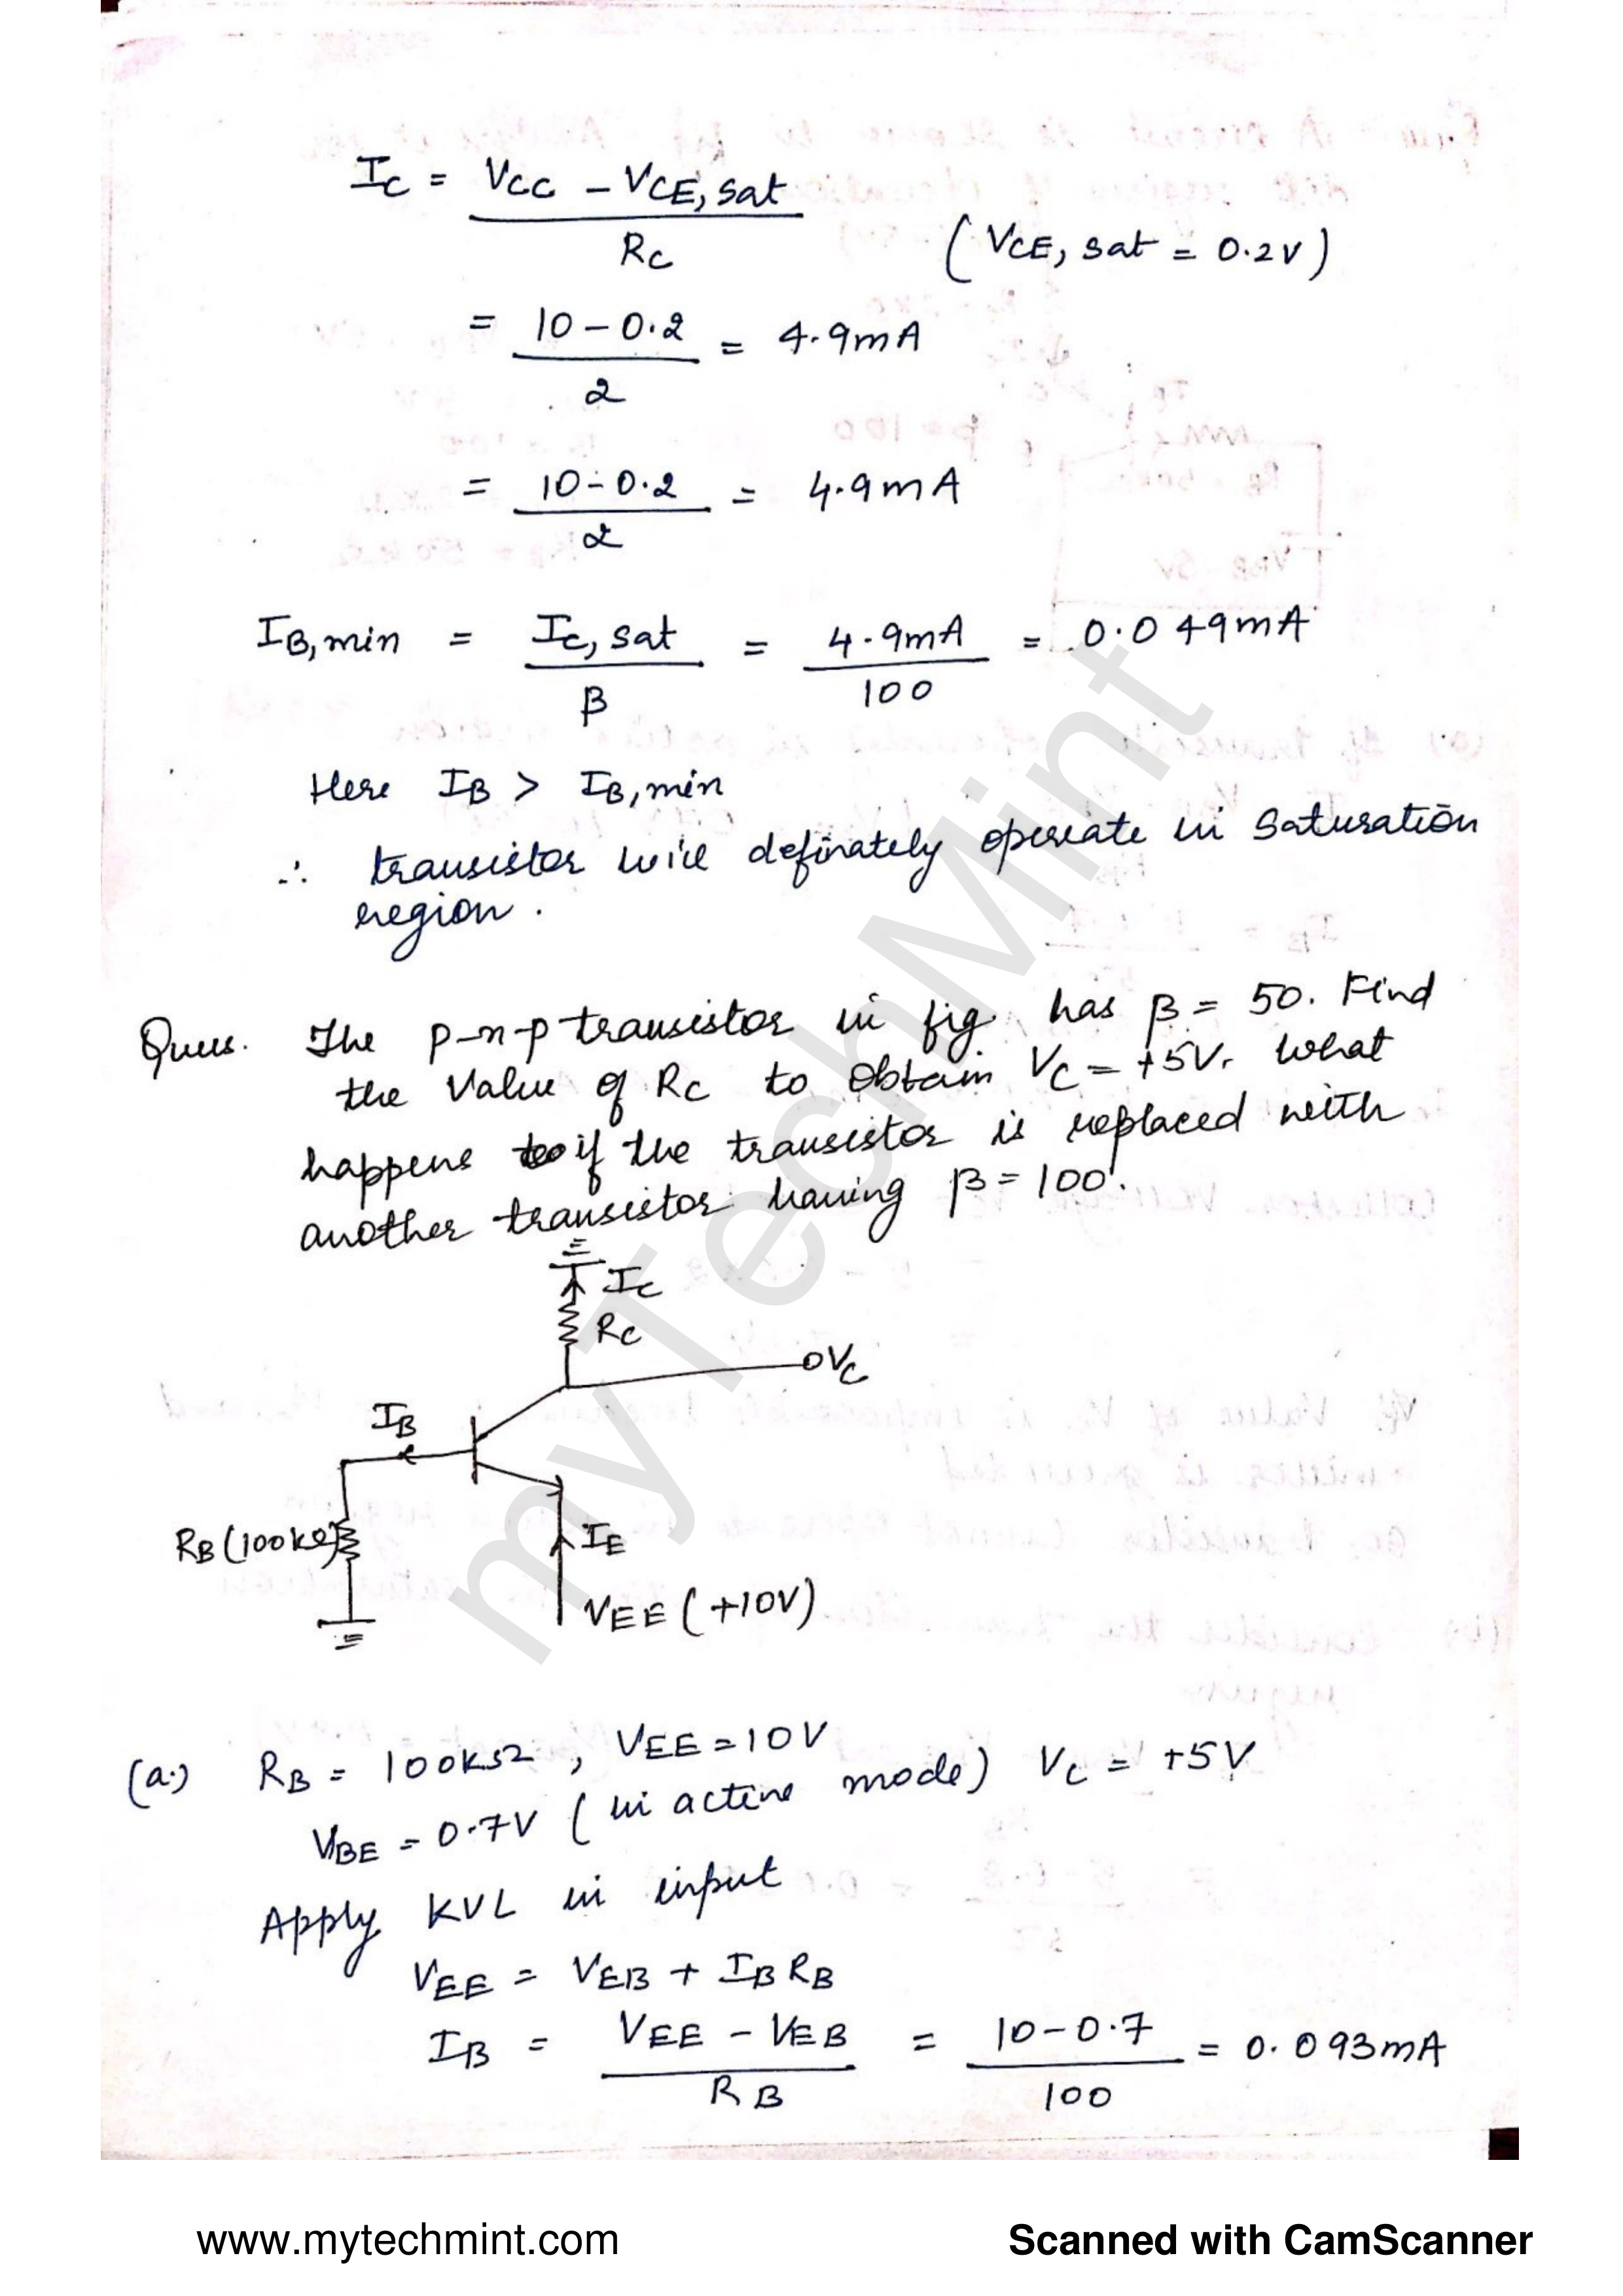 IC = VCC - VCE, sat / RC (VCE, sat = 0.2V)
= 10 - 0.2 / 2 = 4.9mA
= 10 - 0.2 / 2 = 4.9mA
IB, min = IC, sat / β = 4.9mA / 100 = 0.049mA
Here IB > IB, min
∴ transistor will definately operate in saturation
region.
Ques. The p-n-p transistor in fig. has β = 50. Find
the value of RC to obtain VC = +5V. What
happens if the transistor is replaced with
another transistor having β = 100.
IC
RC
VC
IB
RB (100kΩ)
IE
VEE (+10V)
(a.) RB = 100kΩ, VEE = 10V
VBE = 0.7V (in active mode) VC = +5V
Apply KVL in input
VEE = VEB + IB RB
IB = VEE - VEB / RB = 10 - 0.7 / 100 = 0.093mA
myTechMint
www.mytechmint.com
Scanned with CamScanner